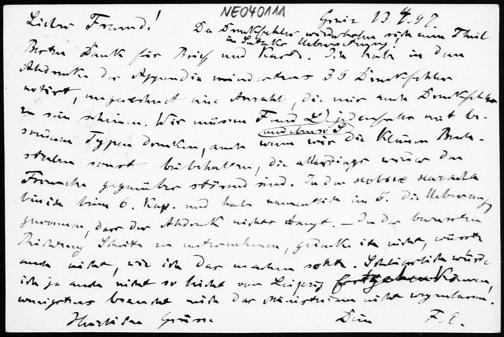 NE040111
Lieber Freund! Graz 13.4.97.
Da Druckfehler wiederholen sich zum Theil
in Satzke Uebersetzung!
Besten Dank für Brief und Karte. Ich habe in dem
Abdrucke der Appendix mindestens 35 Druckfehler
notirt, ungerechnet eine Anzahl, die mir auch Druckfehler
zu sein scheinen. Wir müssen F und jedenfalls mit be-
und ebenso
sonderen Typen drucken, auch wenn wir die kleinen Buch-
staben sonst beibehalten, die allerdings wieder der
gegenüber störend sind. In der
bin ich beim 6. Kap. und habe namentlich in 5. die Ueberzeugung
gewonnen, dass der Abdruck nichts taugt. — In der bewussten
Richtung Schritte zu unternehmen, gedenke ich nicht, wüsste
auch nicht, wie ich das machen sollte. Schliesslich würde
ich ja auch nicht so leicht von Leipzig fortgehen können,
wenigstens braucht mich das Ministerium nicht wegzulassen.
Herzlichen Grüsse Dein F. E.